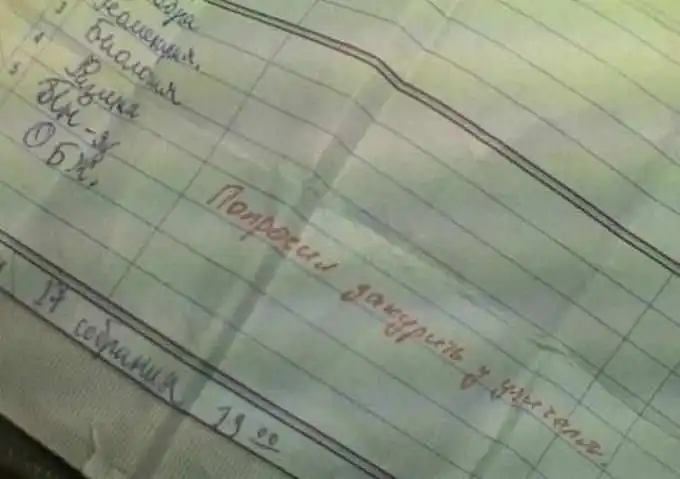 3 Геометрия.
4 Биология
5 Физика
Ин-яз
ОБЖ.
Попросил закурить у учителя.
17 собрание 19 00